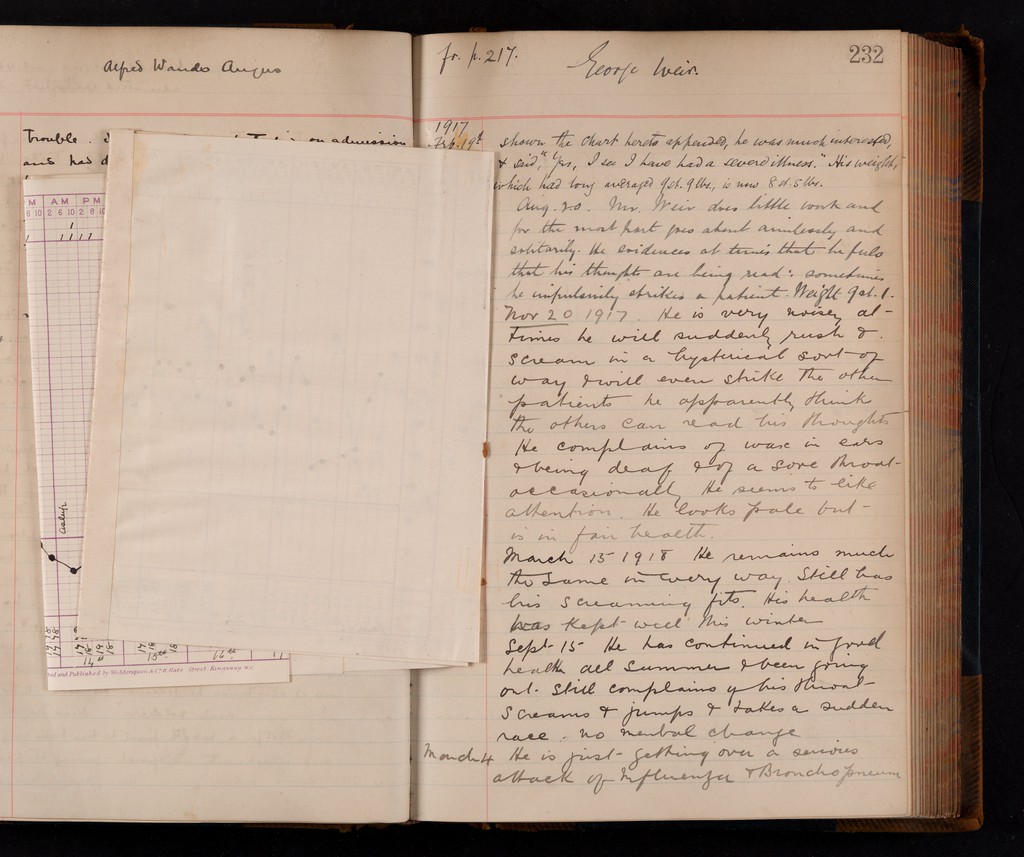 Alfred Wands Angus
Trouble. on admission
and has d
M AM PM
6 10 2 6 10 2 6 10
asleep
and Published by Wodderspoon & Co. 7, Gate Street, Kingsway, W.C.
fr. p. 217.
George Weir.
232
1917
Feb. 19th
shown the chart hereto appended, he was much interested,
& said, "Yes, I see I have had a severe illness." His weight,
which had long averaged 9 st. 9 lbs., is now 8 st. 5 lbs.
Aug. 20. Mr. Weir does little work and
for the most part goes about aimlessly and
solitarily. He evidences at times that he feels
that his thoughts are being read: sometimes
he impulsively strikes a patient. Weight 9 st. 1.
Nov 20 1917. He is very noisy at-
times he will suddenly rush &
scream in a hysterical sort of
way & will even strike the other
patients he apparently thinks
the others can read his thoughts
He complains of wax in ears
& being deaf & of a sore throat-
occasionally He seems to like
attention. He looks pale but-
is in fair health.
March 15 1918 He remains much
the same in every way. Still has
his screaming fits. His health
has kept well this winter
Sept- 15 He has continued in good
health all summer & been going
out. Still complains of his throat-
Screams & jumps & takes a sudden
race. no mental change
March 4 He is just- getting over a serious
attack of Influenza & Bronchopneum